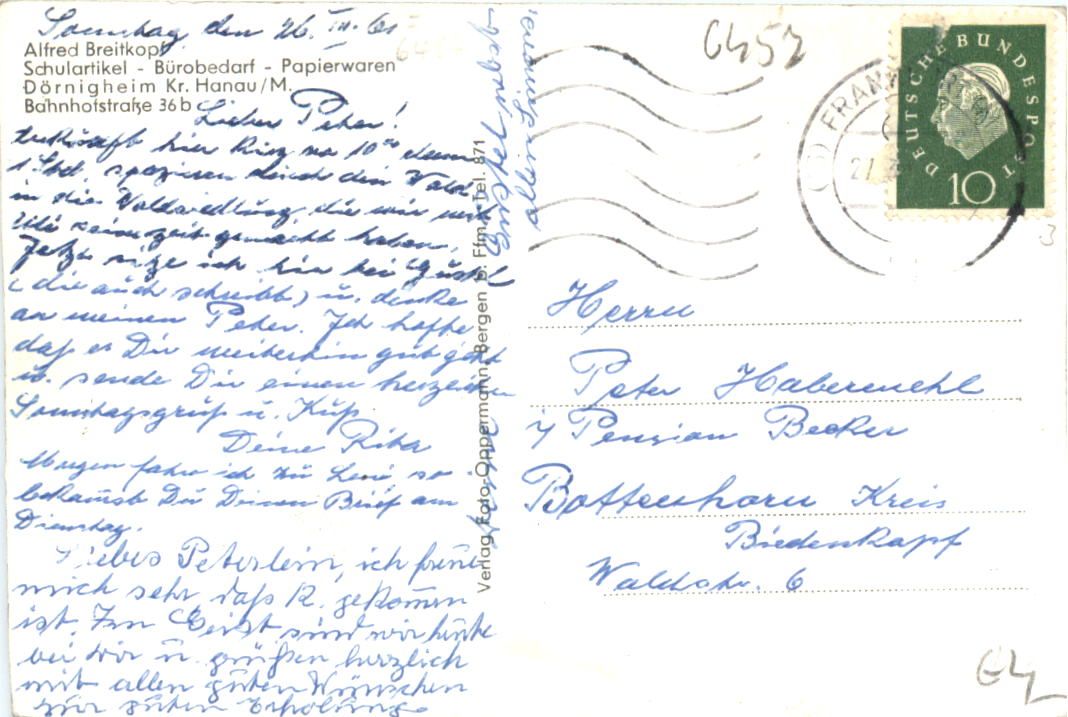 Sonntag den 26. III. 61
Alfred Breitkopf
Schulartikel - Bürobedarf - Papierwaren
Dörnigheim Kr. Hanau/M.
Bahnhofstraße 36 b
Lieber Peter!
hier Ring na 10⁰⁰ dann
1 Std. spazieren durch den Wald
in die Waldsiedlung, die wir mit
Uli keine zeit gemacht haben.
Jetzt sitze ich hier bei Gustel
(die auch schreibt) u. denke
an meinen Peter. Ich hoffe
daß es Dir weiterhin gut geht
u. sende Dir einen herzlichen
Sonntagsgruß u. Kuß.
Deine Rita
Morgen fahre ich zu Leni so
bekommst Du Deinen Brief am
Dienstag.
Liebes Peterlein, ich freue
mich sehr daß R. gekommen
ist. Im Geist sind wir heute
bei Dir u. grüßen herzlich
mit allen guten Wünschen
zur guten Erholung.
Gustel nebst
Verlag Foto-Oppermann, Bergen b. Ffm. Tel. 871
6452
FRANKF
27
DEUTSCHE BUNDESPOST
10
3
Herrn
Peter Habermehl
Pension Becker
Bottenhorn Kreis
Biedenkopf
Waldstr. 6